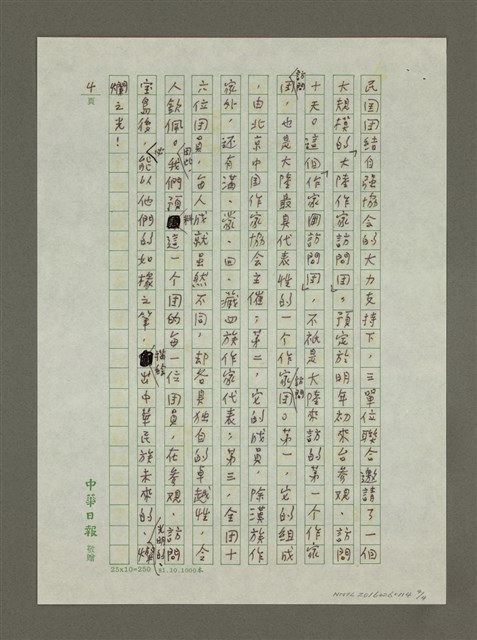 民團團結自強協会的大力支持下，三單位聯合邀請了一個
大規模的「大陸作家訪問團」，預定於明年初來台參观、訪問
十天。這個「作家團訪問團」，不祇是大陸來訪的第一个作家
訪問團，也是大陸最具代表性的一个作家訪問團。第一，它的組成
，由北京中国作家協会主催；第二，它的成員，除漢族作
家外，还有滿、蒙、回、藏四族作家代表；第三，全團十
六位团員，每人成就虽然不同，却各具独自的卓越性，令
人欽佩。因此，我們預料這一个团的每一位团員，在參观、訪問
宝島後，必能以他們的如椽之筆，描繪出中華民族未來的、光明的、燦
爛之光！
4
頁
中華日報
敬贈
25x10=250
81.10.1000本